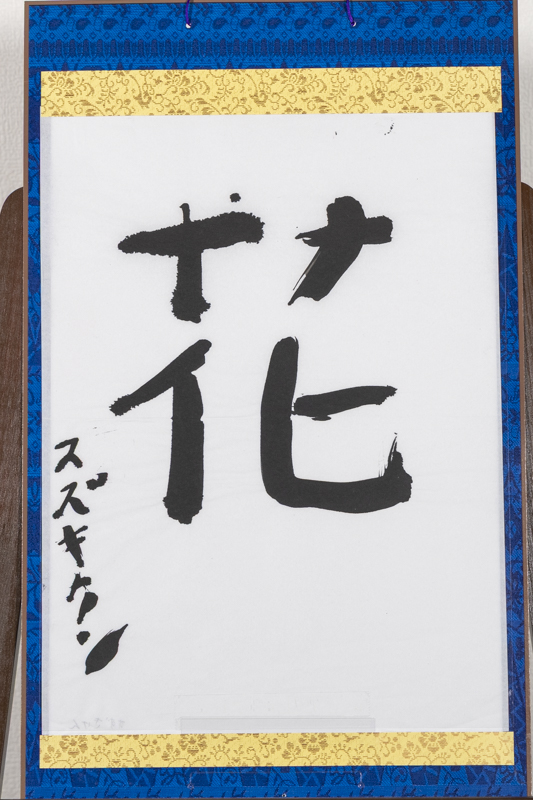 花
スズキケン